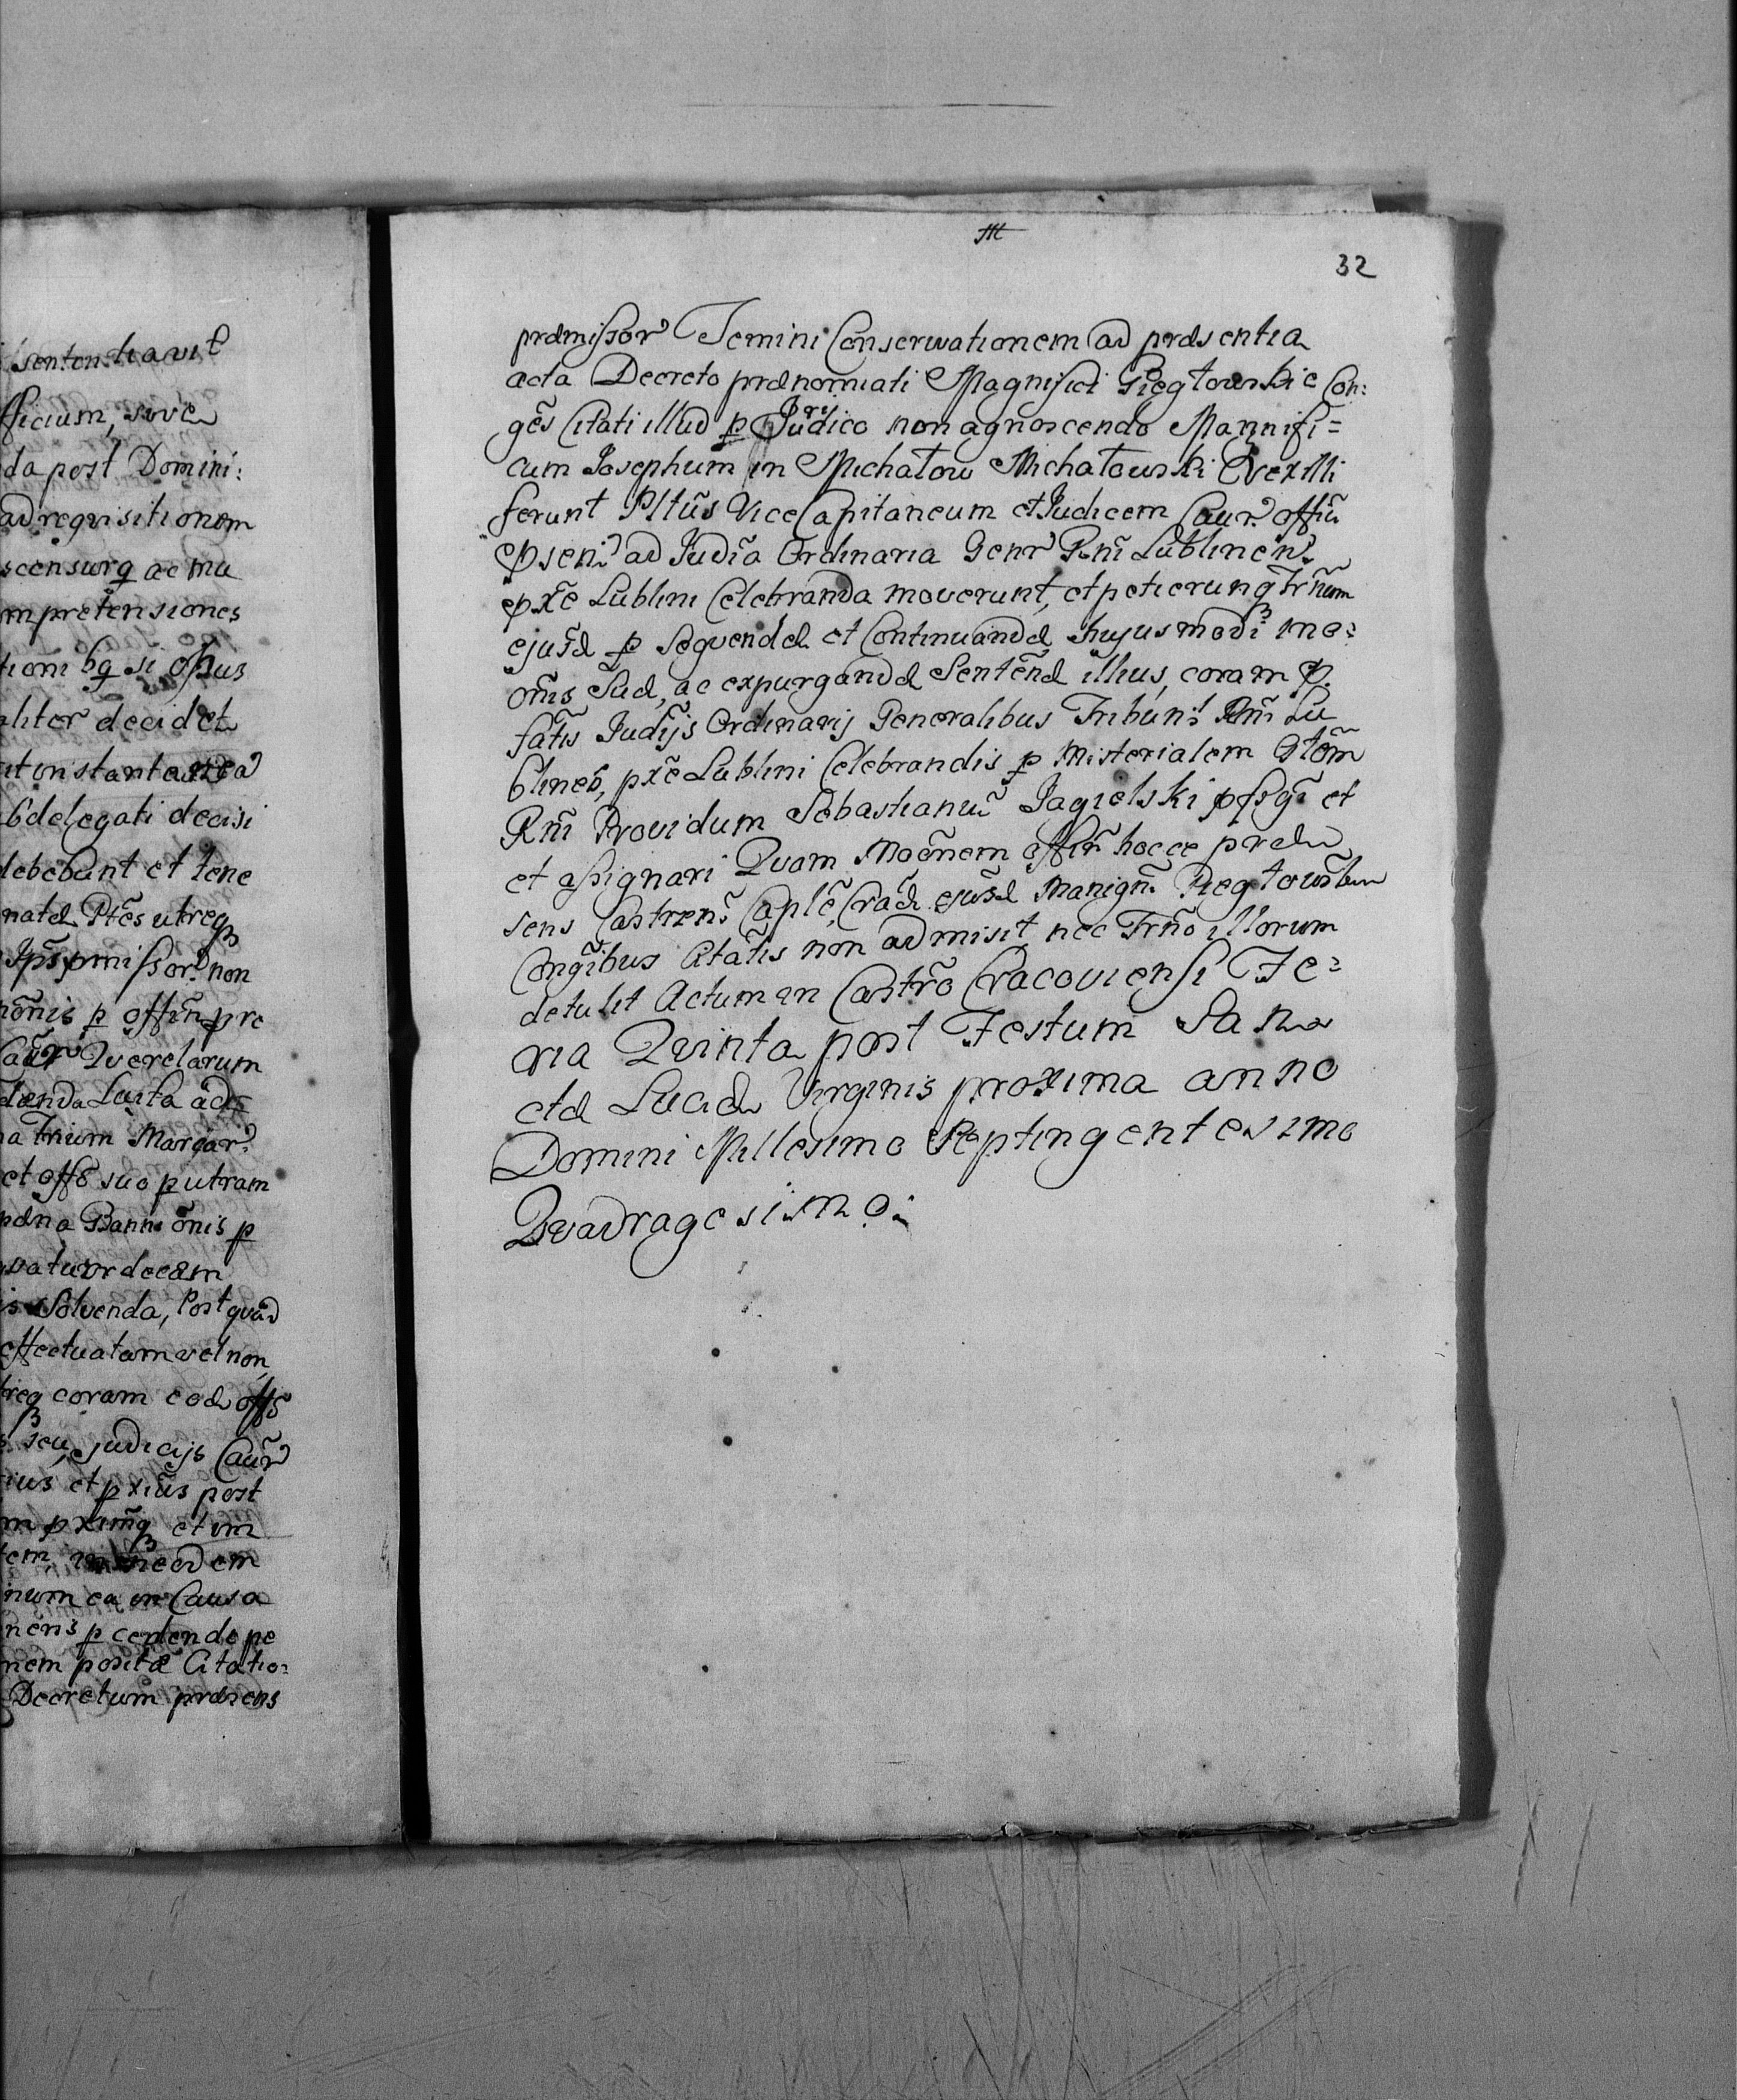 sententiavit
fficium, sive
da post Domini:
ad requisitionem
scensurq ac mu
m pretensiones
tioni bq si opus
aliter decidet
it instantanea
bdelegati decisi
debebunt et tene
natæ Ptẽs utreq
Ips pmissor non
nõnis p offin pre
Caur Querelarum
danda Luita adr
a trium Marcar.
et offõ suo p utram
pæna Banniõnis p
vatuor decem
is Solvenda, Post quæ
effectuatam vel non
treq coram eod offõ
seu judicijs Caur
ius, et pxius post
m pximq et im
tem, in eodem
inum ea in Causa
neris p cedendo pe
nem positæ Citatio:
Decretum præsens
32
præmissor Temini Conservationem ad præsentia
acta Decreto prænominati Magnifici Piegłowskie Con:
gẽs Citati illud p Judico non agnoscendo Mannifi=
cum Josephum in Michałow Michałowski Vexilli
ferunt Pltũs ViceCapitaneum et Judicem Caur. offin
psen. ad Judia Ordinaria Genr Rni Lublinen.
pxe Lublini Celebranda moverunt, et petierunq Trnum
ejusd p sequendæ et Continuandæ hujusmodi mo=
onis Sud, ac expurgandæ Sentend illius, coram p.
fatis Judijs Ordinarijs Generalibus Tribunl Rni Lu
blineñ, pxe Lublini Celebrandis p Misterialem Gtom
Rni Providum Sebastianu Jagielski pfigi et
et assignari Quam Moonem offin hocce præ
sens Castren. Caple, Crac ejusd Manign. Piegłowskim
Congibus Citatis non admisit nec Trno illorum
detulit Actum in Castro Cracoviensi Fe=
ria Quinta post Festum San
ctæ Luciæ Virginis proxima anno
Domini Millesimo Septingentesimo
Quadragesimo: